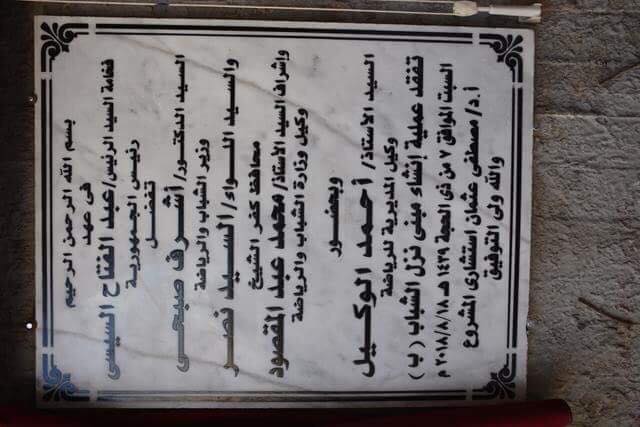 بسم الله الرحمن الرحيم
فى عهد
فخامة السيد الرئيس/عبد الفتاح السيسى
رئيس الجمهورية
تفضل
السيد الدكتور/أشرف صبحى
وزير الشباب والرياضة
والسيد اللواء/السيد نصر
محافظ كفر الشيخ
وإشراف السيد الأستاذ/محمد عبد المقصود
وكيل وزارة الشباب والرياضة
وبحضور
السيد الأستاذ/أحمد الوكيل
وكيل المديرية للرياضة
تفقد عملية إنشاء مبنى نزل الشباب (ب)
السبت الموافق ٧ من ذى الحجة ١٤٣٩ هـ ٢٠١٨/٨/١٨ م
أ.د/مصطفى عثمان استشارى المشروع
والله ولى التوفيق